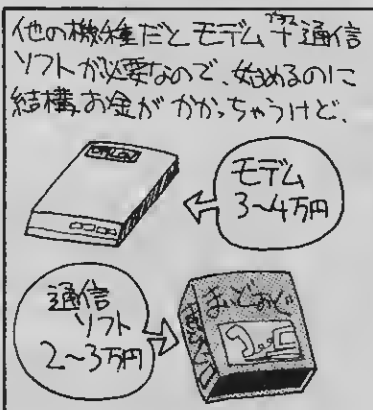 他の機種だとモデム＋通信
プラス
ソフトが必要なので、始めるのに
結構お金がかかっちゃうけど、
モデム
3～4万円
通信
ソフト
2～3万円
まいとーく